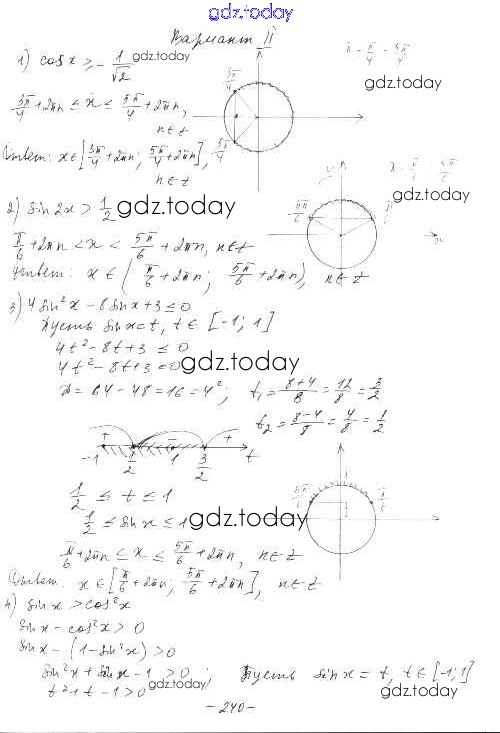 gdz.today
Вариант II
1) cos x ≥ - 1/√2 gdz.today
π - π/4 = 3π/4
gdz.today
3π/4 + 2πn ≤ x ≤ 5π/4 + 2πn,
n ∈ z
Ответ: x ∈ [3π/4 + 2πn; 5π/4 + 2πn],
n ∈ z
3π/4
5π/4
gdz.today
2) sin 2x > 1/2 gdz.today
π/6 + 2πn < x < 5π/6 + 2πn, n ∈ z
Ответ: x ∈ (π/6 + 2πn; 5π/6 + 2πn), n ∈ z
5π/6
3) 4 sin²x - 8 sin x + 3 ≤ 0
Пусть sin x = t, t ∈ [-1; 1]
4t² - 8t + 3 ≤ 0
4t² - 8t + 3 = 0 gdz.today
D = 64 - 48 = 16 = 4²; t₁ = (8+4)/8 = 12/8 = 3/2
t₂ = (8-4)/8 = 4/8 = 1/2
+ - +
-1 1/2 1 3/2 t
1/2 ≤ t ≤ 1
1/2 ≤ sin x ≤ 1 gdz.today
5π/6
π/6 + 2πn ≤ x ≤ 5π/6 + 2πn, n ∈ z
Ответ: x ∈ [π/6 + 2πn; 5π/6 + 2πn], n ∈ z
4) sin x > cos²x
sin x - cos²x > 0
sin x - (1 - sin²x) > 0
sin²x + sin x - 1 > 0; Пусть sin x = t, t ∈ [-1; 1]
t² + t - 1 > 0 gdz.today gdz.today
- 240 -